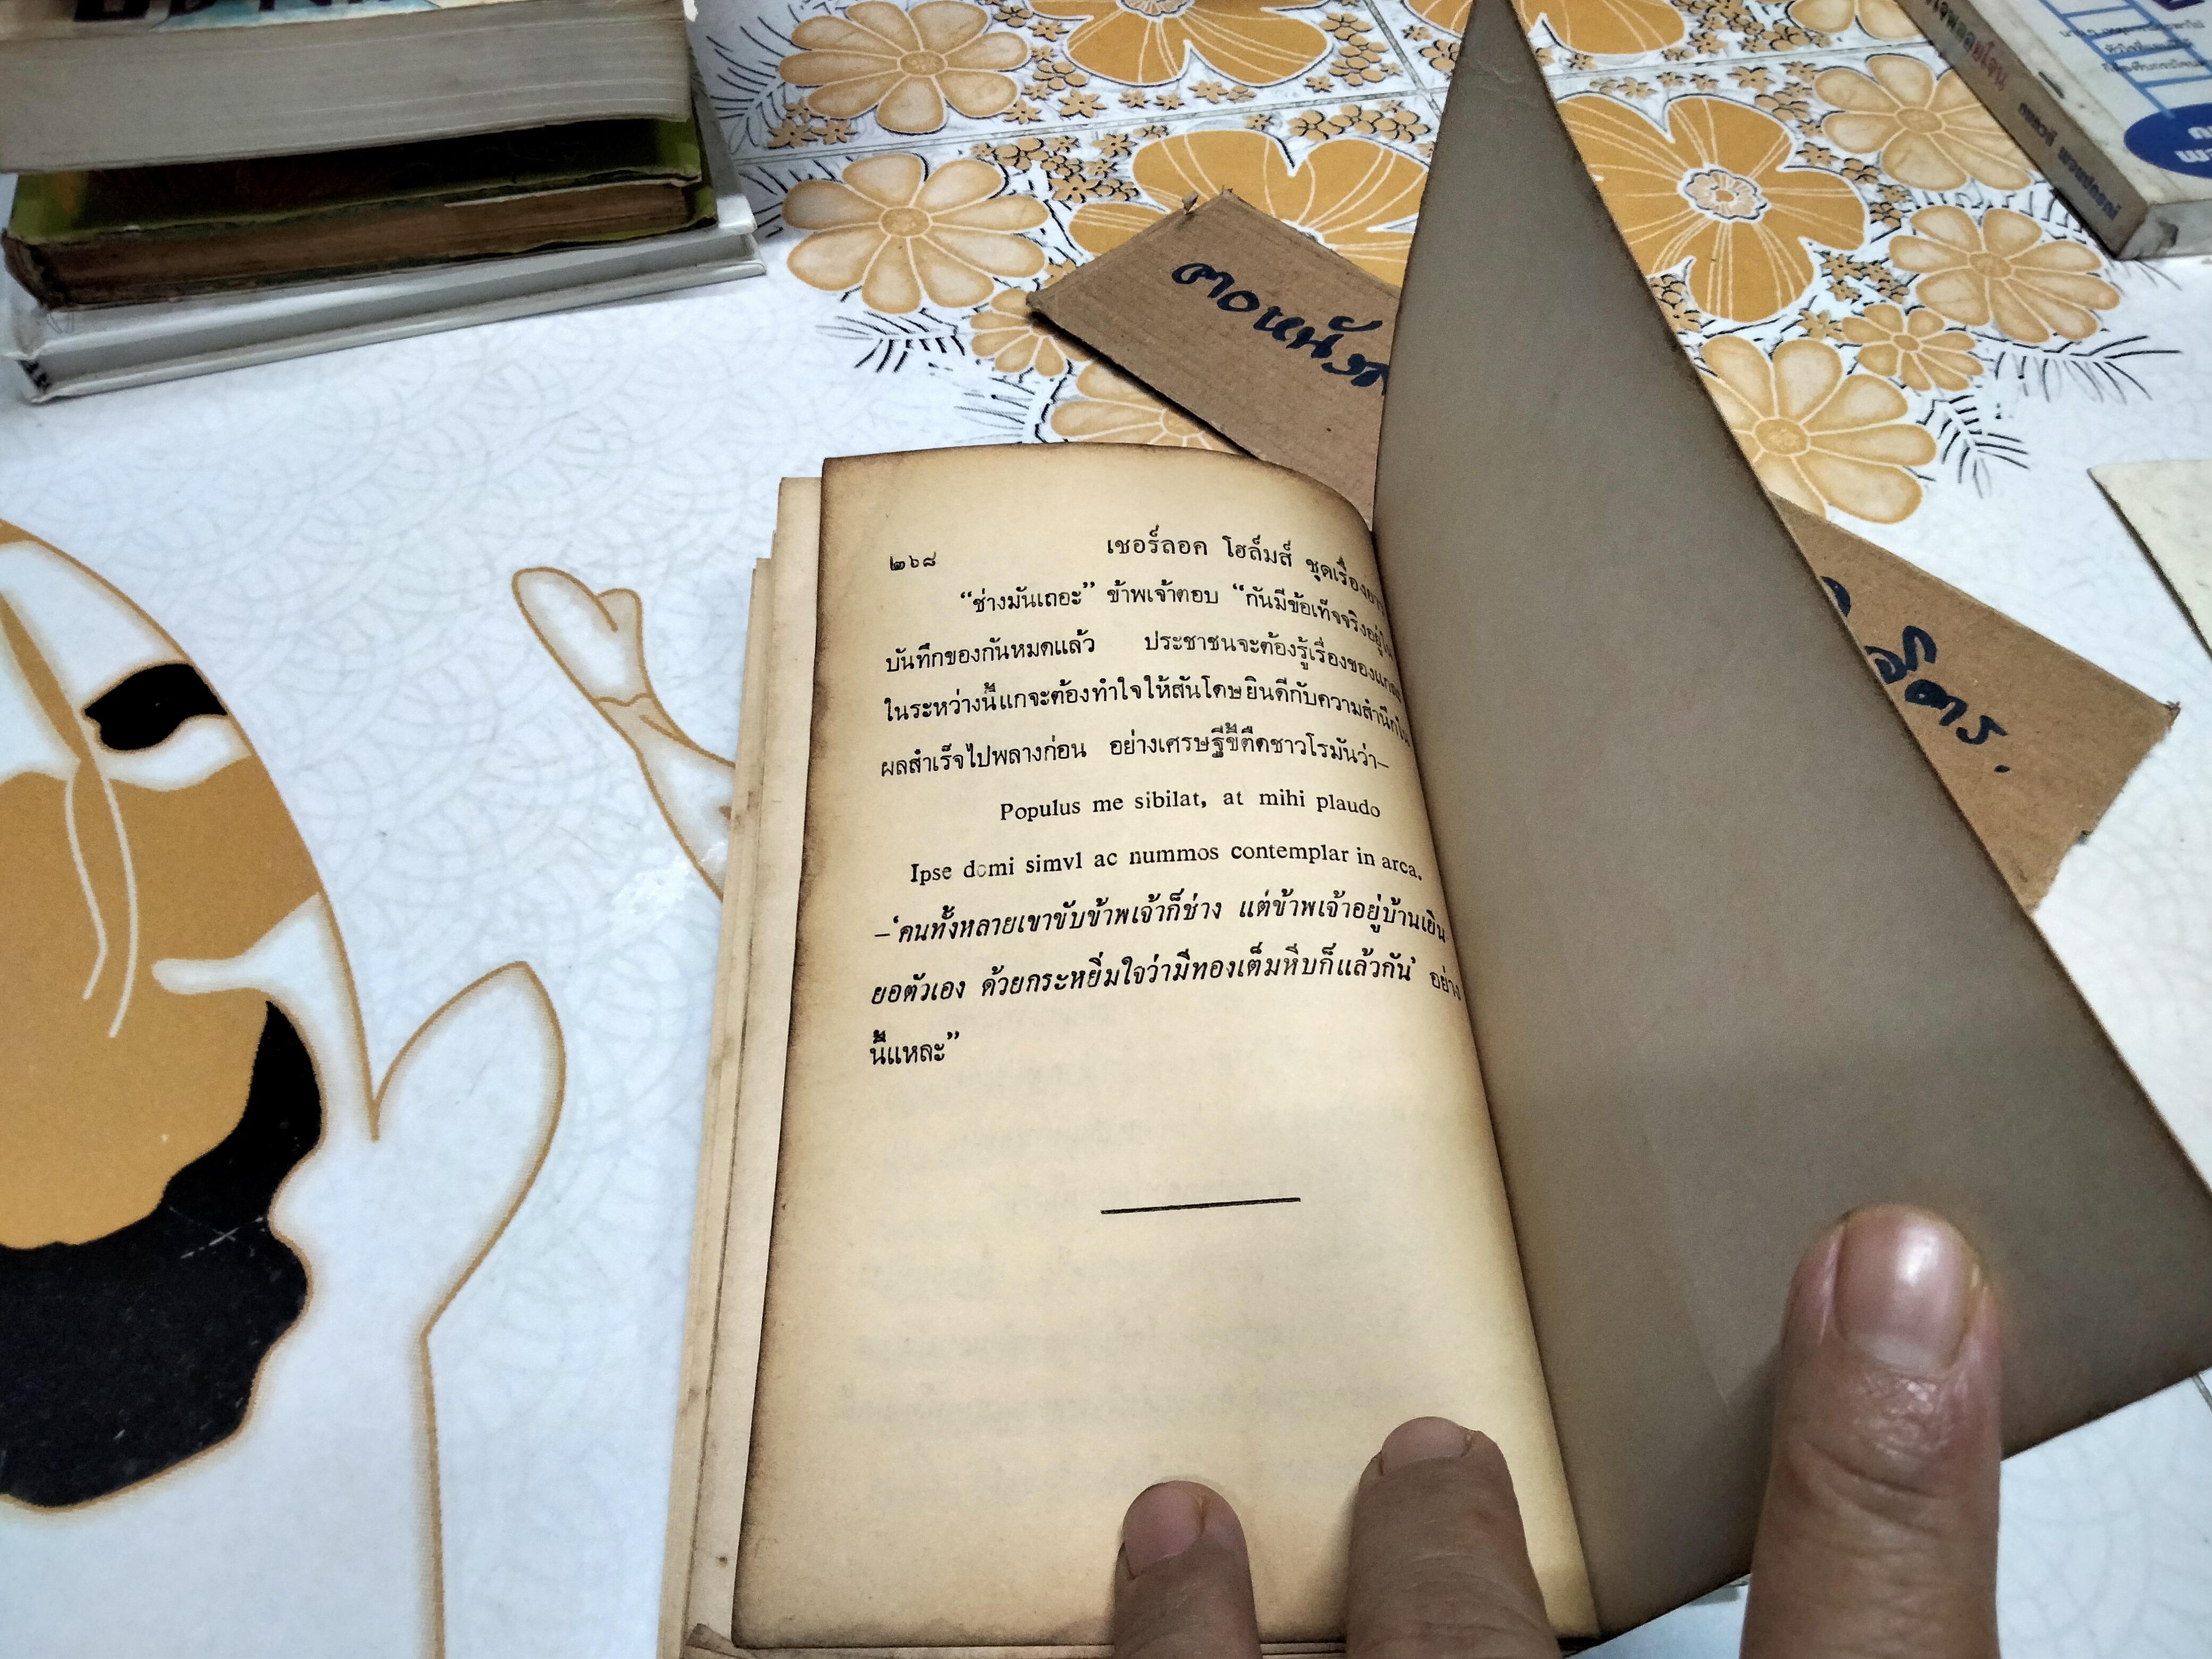 ตอหนัง
จิตร.
๒๖๘
เชอร์ลอค โฮล์มส์ ชุดเรื่องยาว
“ช่างมันเถอะ” ข้าพเจ้าตอบ “กันมีข้อเท็จจริงอยู่ใน
บันทึกของกันหมดแล้ว ประชาชนจะต้องรู้เรื่องของแก
ในระหว่างนี้แกจะต้องทำใจให้สันโดษยินดีกับความสำนึกใน
ผลสำเร็จไปพลางก่อน อย่างเศรษฐีขี้ตืดชาวโรมันว่า—
Populus me sibilat, at mihi plaudo
Ipse domi simvl ac nummos contemplar in arca.
—‘คนทั้งหลายเขาขับข้าพเจ้าก็ช่าง แต่ข้าพเจ้าอยู่บ้านเยิน
ยอตัวเอง ด้วยกระหยิ่มใจว่ามีทองเต็มหีบก็แล้วกัน’ อย่าง
นี้แหละ”